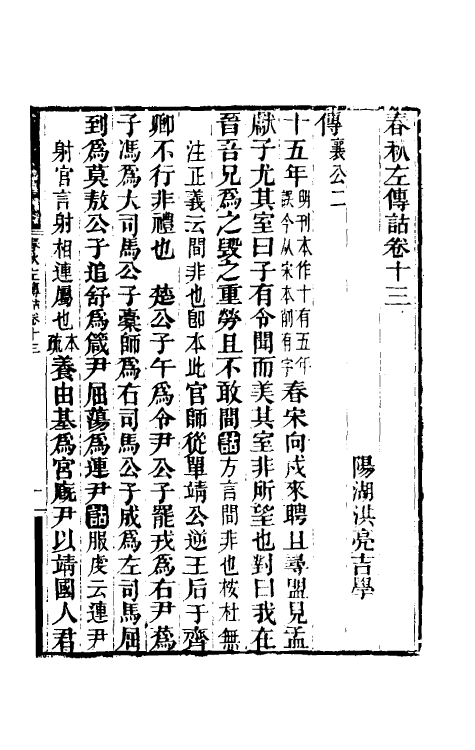 春秋左傳詁卷十三
陽湖洪亮吉學
傳襄公二
十五年明刊本作十有五年誤今从宋本刪有字春宋向戌來聘且尋盟見孟
獻子尤其室曰子有令聞而美其室非所望也對曰我在
晉吾兄爲之毀之重勞且不敢間詁方言間非也按杜無
注正義云間非也卽本此官師從單靖公逆王后于齊
卿不行非禮也 楚公子午爲令尹公子罷戎爲右尹蔿
子馮爲大司馬公子櫜師爲右司馬公子成爲左司馬屈
到爲莫敖公子追舒爲箴尹屈蕩爲連尹詁服虔云連尹
射官言射相連屬也本疏養由基爲宮廐尹以靖國人君
春秋左傳詁卷十三
一